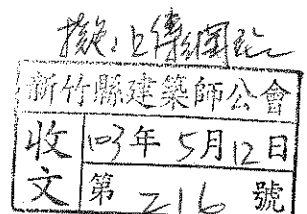 擬:上傳網站
新竹縣建築師公會
收文 103年5月12日
第 216 號